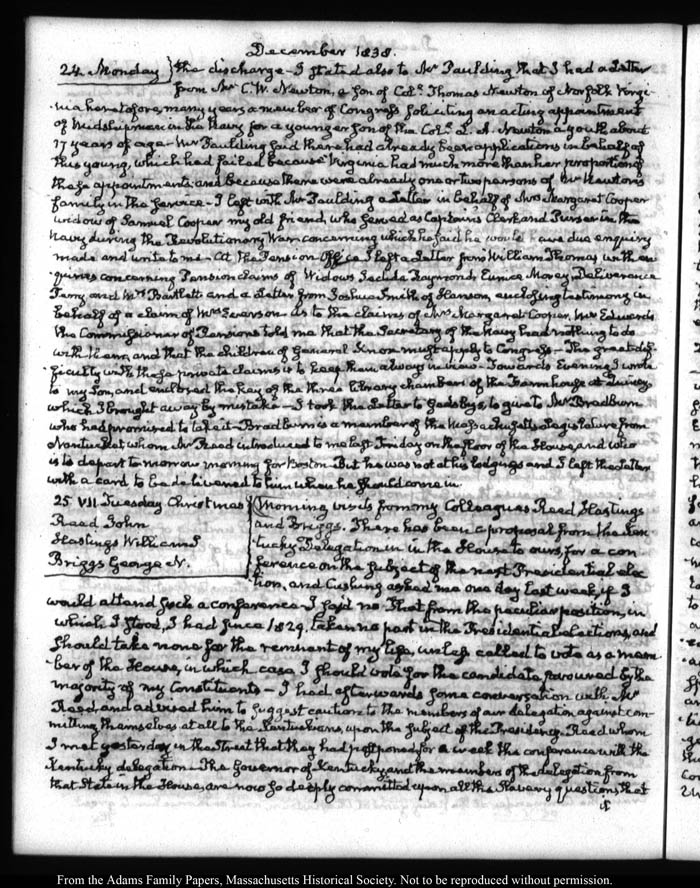 December 1838.
24. Monday } the discharge – I stated also to Mr Paulding that I had a Letter
from Mr C. W. Newton, a son of Coll. Thomas Newton of Norfolk Virgi-
nia heretofore, many years a member of Congress soliciting an acting appointment
of Midshipman in the Navy for a younger son of the Coll. Newton a youth about
17 years of age – Mr Paulding said there had already been applications in behalf of
this young, which had failed because Virginia had much more than her proportion of
these appointments; and because there were already one or two persons of Mr Newton's
family in the service – I left with Mr Paulding a Letter in behalf of Mrs Margaret Cooper
widow of Samuel Cooper my old friend, who served as Captain's Clerk and Purser in the
Navy during the Revolutionary War concerning which he said he would have due enquiry
made and write to me – At the Pension Office I left a Letter from William Thomas with en-
quiries concerning Pension claims of Widows Raymond, Eunice Morey, Deliverance
Terry, and Mrs Bartlett and a Letter from Joshua Smith of Hanson, enclosing testimony in
behalf of a claim of Mrs As to the claims of Mrs Margaret Cooper, Mr Edwards
the Commissioner of Pensions told me that the Secretary of the Navy had nothing to do
with them, and that the children of General Knox must apply to Congress – The great dif-
ficulty with these private claims is to keep them always in view – Towards Evening I wrote
to my Son, and enclosed the key of the three library chambers of the Farm house at Quincy
which I brought away by mistake – I took the Letter to Gadsby's, to give to Mr Bradburn
who had promised to take it – Bradburn is a member of the Massachusetts Legislature from
Nantucket, whom Mr Reed introduced to me last Friday on the floor of the House, and who
is to depart to morrow morning for Boston – But he was not at his lodgings and I left the Letter
with a card to be delivered to him when he should come in.
25. VII. Tuesday Christmas } Morning visits from my Colleagues Reed Hastings
Reed John
and Briggs. There has been a proposal from the Ken-
Hastings William S
tucky Delegation in in the House to ours, for a con-
Briggs George N.
ference on the subject of the next Presidential elec-
tion, and Cushing asked me one day last week, if I
would attend such a conference – I said no. That from the peculiar position, in
which I stood, I had since 1829. taken no part in the Presidential elections, and
should take none for the remnant of my life, unless called to vote as a mem-
ber of the House, in which case I should vote for the candidate favoured by the
majority of my Constituents – I had afterwards some conversation with Mr
Reed, and advised him to suggest caution to the members of our delegation against com-
mitting themselves at all to the Kentuckians, upon the subject of the Presidency. Reed whom
I met yesterday in the Street that they had postponed for a week the conference with the
Kentucky delegation – The Governor of Kentucky, and the members of the delegation from
that State in the House, are now so deeply committed upon all the Slavery questions, that
if
From the Adams Family Papers, Massachusetts Historical Society. Not to be reproduced without permission.